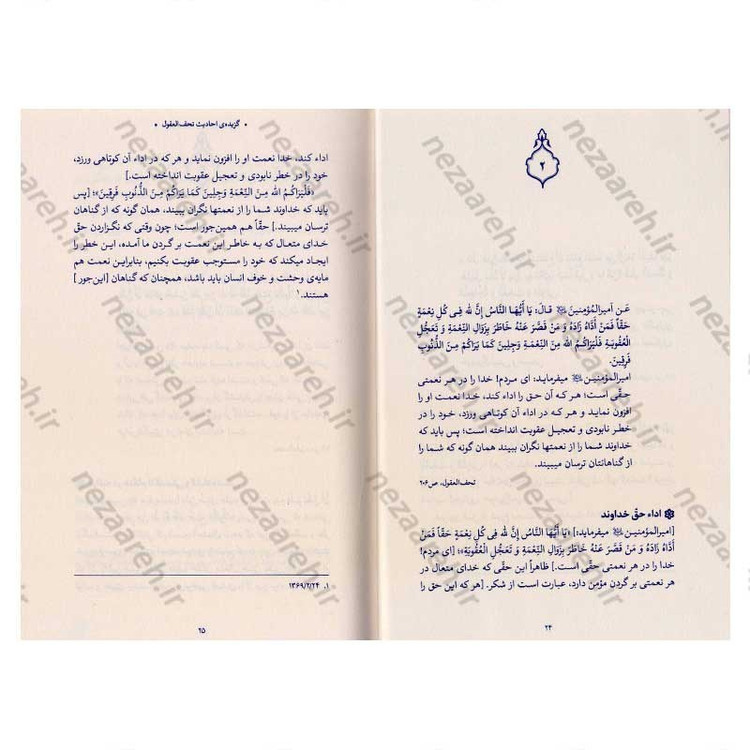 ۲
عَن اَمیرِالمُؤمِنین قالَ: یا اَیُّهَا النّاسُ اِنَّ لله فِی کُلِّ نِعمَةٍ
حَقّاً فَمَن اَدّاهُ زادَهُ وَ مَن قَصَّرَ عَنهُ خاطَرَ بِزَوالِ النِّعمَةِ وَ تَعَجُّلِ
العُقوبَةِ فَلیَراکُمُ الله مِنَ النِّعمَةِ وَجِلینَ کَما یَراکُم مِنَ الذُّنوبِ
فَرِقینَ.
امیرالمؤمنین میفرماید: ای مردم! خدا را در هر نعمتی
حقّی است؛ هر که آن حق را اداء کند، خدا نعمت او را
افزون نماید و هر که در اداء آن کوتاهی ورزد، خود را در
خطر نابودی و تعجیل عقوبت انداخته است؛ پس باید که
خداوند شما را از نعمتها نگران ببیند همان گونه که شما را
از گناهانتان ترسان میبیند.
تحف‌العقول، ص۲۰۶
اداء حقّ خداوند
[امیرالمؤمنین میفرماید:] «یا اَیُّهَا النّاسُ اِنَّ لله فی کُلِّ نِعمَةٍ حَقّاً فَمَن
اَدّاهُ زادَهُ وَ مَن قَصَّرَ عَنهُ خاطَرَ بِزَوالِ النِّعمَةِ وَ تَعَجُّلِ العُقوبَةِ»؛ [ای مردم!
خدا را در هر نعمتی حقّی است.] ظاهراً این حقّی که خدای متعال در
هر نعمتی بر گردن مؤمن دارد، عبارت است از شکر. [هر که این حق را
۲۴
• گزیده‌ی احادیث تحف‌العقول •
اداء کند، خدا نعمت او را افزون نماید و هر که در اداء آن کوتاهی ورزد،
خود را در خطر نابودی و تعجیل عقوبت انداخته است.]
«فَلیَراکُمُ الله مِنَ النِّعمَةِ وَجِلینَ کَما یَراکُم مِنَ الذُّنوبِ فَرِقینَ»؛ [پس
باید که خداوند شما را از نعمتها نگران ببیند، همان گونه که از گناهان
ترسان میبیند.] حقّاً هم همین‌جور است؛ چون وقتی که نگزاردن حقّ
خدای متعال که به خاطر این نعمت بر گردن ما آمده، این خطر را
ایجاد میکند که خود را مستوجب عقوبت بکنیم، بنابراین نعمت هم
مایه‌ی وحشت و خوف انسان باید باشد، همچنان که گناهان [این‌جور]
هستند.۱
۱. ۱۳۶۹/۲/۲۴
۲۵
nezaareh.ir
nezaareh.ir
nezaareh.ir
nezaareh.ir
nezaareh.ir
nezaareh.ir